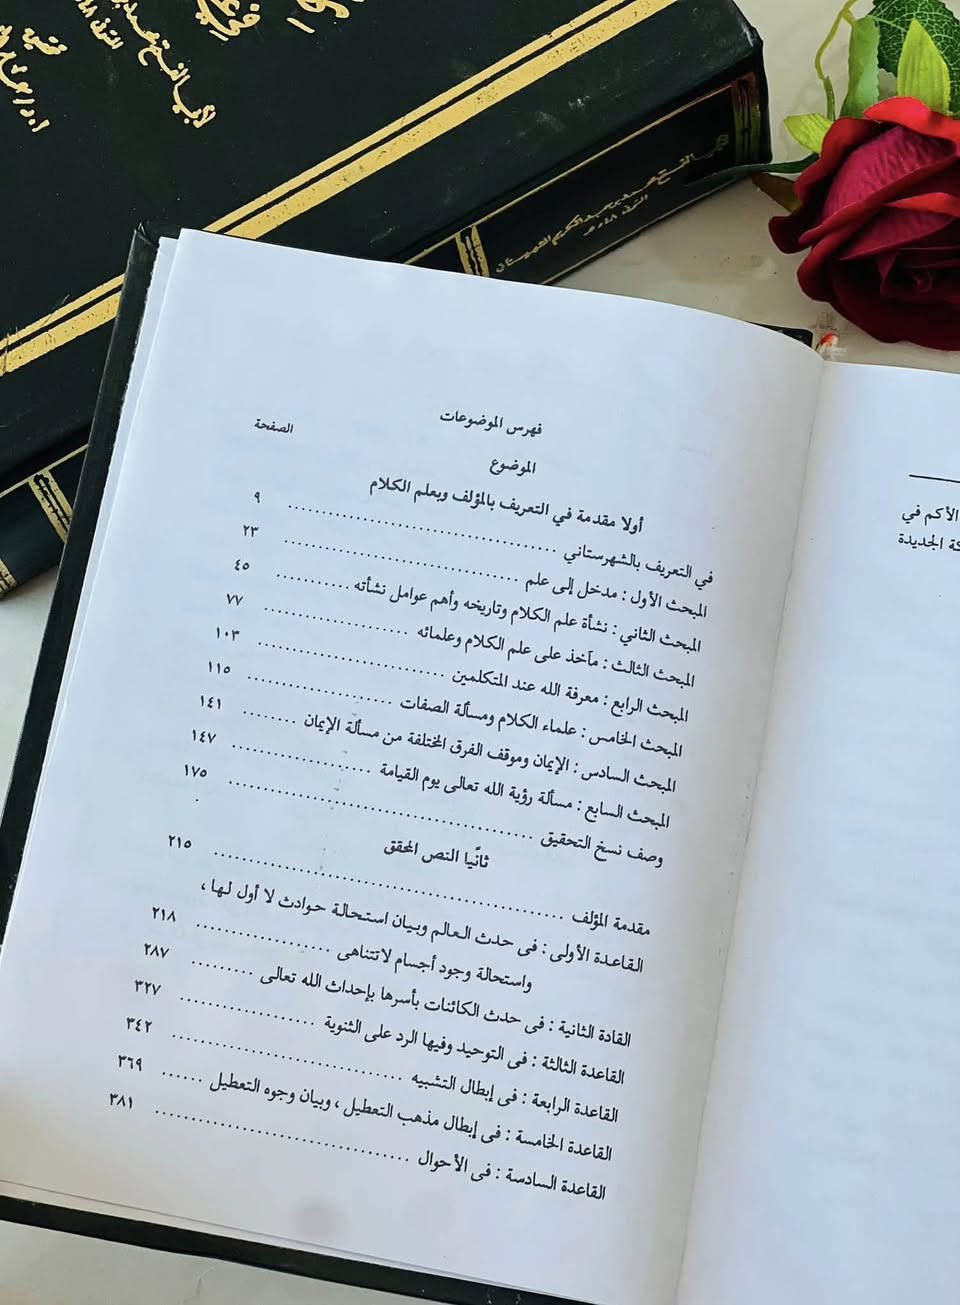 لأبي الفتح محمد بن عبد الكريم الشهرستاني
المتوفى ٥٤٨ هـ
فهرس الموضوعات
الموضوع
الصفحة
أولا مقدمة في التعريف بالمؤلف وبعلم الكلام
في التعريف بالشهرستاني ........ ٩
المبحث الأول : مدخل إلى علم ........ ٢٣
المبحث الثاني : نشأة علم الكلام وتاريخه وأهم عوامل نشأته ........ ٤٥
المبحث الثالث : مآخذ على علم الكلام وعلمائه ........ ٧٧
المبحث الرابع : معرفة الله عند المتكلمين ........ ١٠٣
المبحث الخامس : علماء الكلام ومسألة الصفات ........ ١١٥
المبحث السادس : الإيمان وموقف الفرق المختلفة من مسألة الإيمان ........ ١٤١
المبحث السابع : مسألة رؤية الله تعالى يوم القيامة ........ ١٤٧
وصف نسخ التحقيق ........ ١٧٥
ثانًيا النص المحقق
مقدمة المؤلف ........ ٢١٥
القاعدة الأولى : فى حدث العالم وبيان استحالة حوادث لا أول لها ،
واستحالة وجود أجسام لاتتناهى ........ ٢١٨
القادة الثانية : فى حدث الكائنات بأسرها بإحداث الله تعالى ........ ٢٨٧
القاعدة الثالثة : فى التوحيد وفيها الرد على الثنوية ........ ٣٢٧
القاعدة الرابعة : فى إبطال التشبيه ........ ٣٤٢
القاعدة الخامسة : فى إبطال مذهب التعطيل ، وبيان وجوه التعطيل ........ ٣٦٩
القاعدة السادسة : فى الأحوال ........ ٣٨١
الأكم في
الجديدة